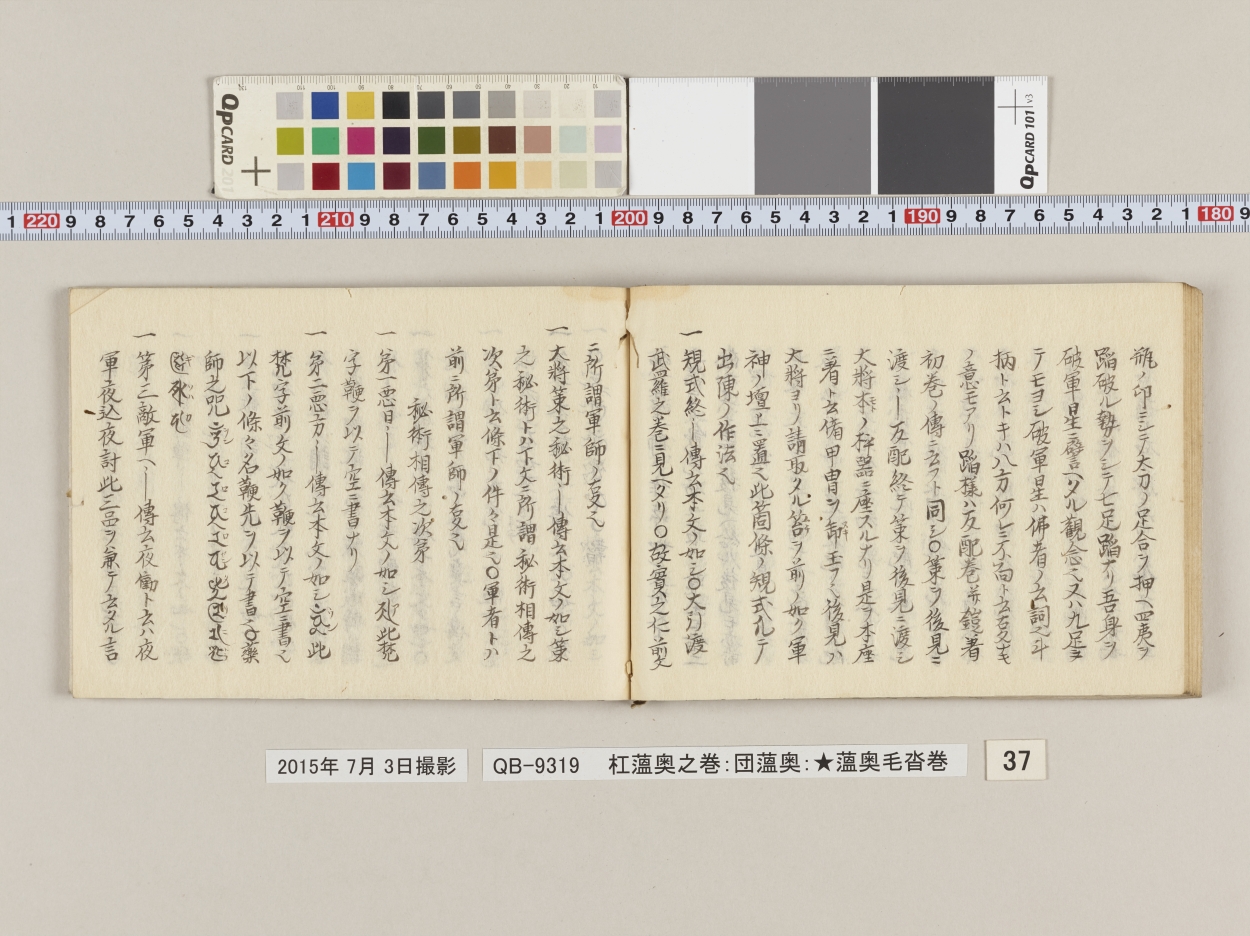 QPCARD 201
QPCARD 101 v3
1 220 9 8 7 6 5 4 3 2 1 210 9 8 7 6 5 4 3 2 1 200 9 8 7 6 5 4 3 2 1 190 9 8 7 6 5 4 3 2 1 180 9
瓶ノ印ニシテ太刀ノ足合ヲ押ヘ四夷ヲ
蹈破ル勢ヲシテ七足蹈ナリ吾身ヲ
破軍星ニ譬ヘタル観念也又ハ九足ヨ
テモヨシ破軍星ハ佛者ノ云詞也斗
柄ト云トキハ八方何レニ不向ト云
ノ意モアリ蹈様ハ反配巻并鎧着
初巻ノ傳ニ云フト同シ〇策ヲ後見ニ
渡シ｜反配終テ策ヲ後見ニ渡シ
大将床ノ座スルナリ是ヲ本座
ニ著ト云備甲冑シ後見ハ
大将ヨリ請取タル前ノ如ク軍
神ノ壇上ニ置也此箇條ノ規式九テ
出陳ノ作法也
一規式終｜傳云本文ノ如シ〇大引渡
武羅之巻ニ見ヘタリ〇故實之仁前文
ニ所謂軍師ノ支也
一大将策之秘術｜傳云本文ノ如シ策
之秘術トハ下文ニ所謂秘術相傳之
次第ト云條下ノ件々是也〇軍者トハ
前ニ所謂軍師ノ支也
秘術相傳之次第
一第一悪日｜傳云本文ノ如シ此梵
字鞭ヲ以テ空ニ書ナリ
一第二悪方｜傳云本文ノ如シ此
梵字前文ノ如ク鞭ヲ以テ空ニ書也
以下ノ條々名鞭先ヲ以テ書〇藥
師之咒
一第三敵軍ヘ｜傳云夜働ト云ハ夜
軍夜込夜討此三品ヲ兼テ云タル言
2015年 7月 3日撮影
QB-9319 杠薀奥之巻:団薀奥:★薀奥毛沓巻
37